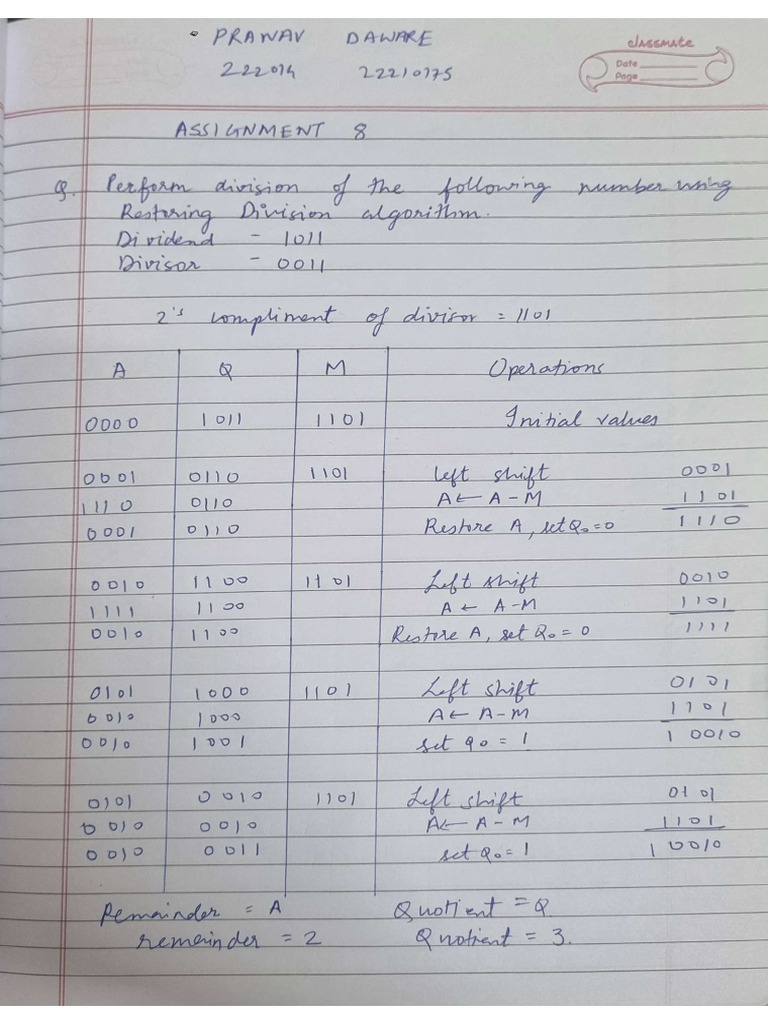 PRANAV DAWARE
222014 22210175
classmate
Date
Page
ASSIGNMENT 8
Q. Perform division of the following number using
Restoring Division algorithm.
Dividend - 1011
Divisor - 0011
2's compliment of divisor = 1101
A Q M Operations
0000 1011 1101 Initial values
0001 0110 1101 left shift 0001
1110 0110 A ← A - M 1101
0001 0110 Restore A, set Q₀ = 0 1110
0010 1100 1101 Left shift 0010
1111 1100 A ← A - M 1101
0010 1100 Restore A, set Q₀ = 0 1111
0101 1000 1101 Left shift 0101
0010 1000 A ← A - M 1101
0010 1001 set Q₀ = 1 1 0010
0101 0010 1101 Left shift 0101
0010 0010 A ← A - M 1101
0010 0011 set Q₀ = 1 1 0010
Remainder = A Quotient = Q
remainder = 2 Quotient = 3.